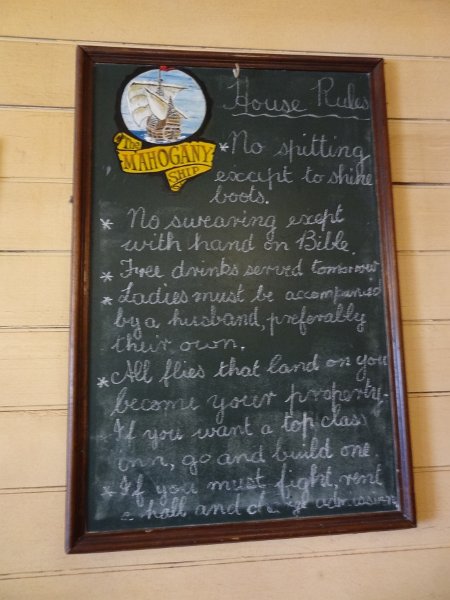 The
MAHOGANY
SHIP
House Rules
* No spitting
except to shine
boots.
* No swearing exept
with hand on Bible.
* Free drinks served tomorrow
* Ladies must be accompanied
by a husband, preferably
their own.
* All flies that land on you
become your property.
- If you want a top class
inn, go and build one.
* If you must fight, rent
a hall and charge admission